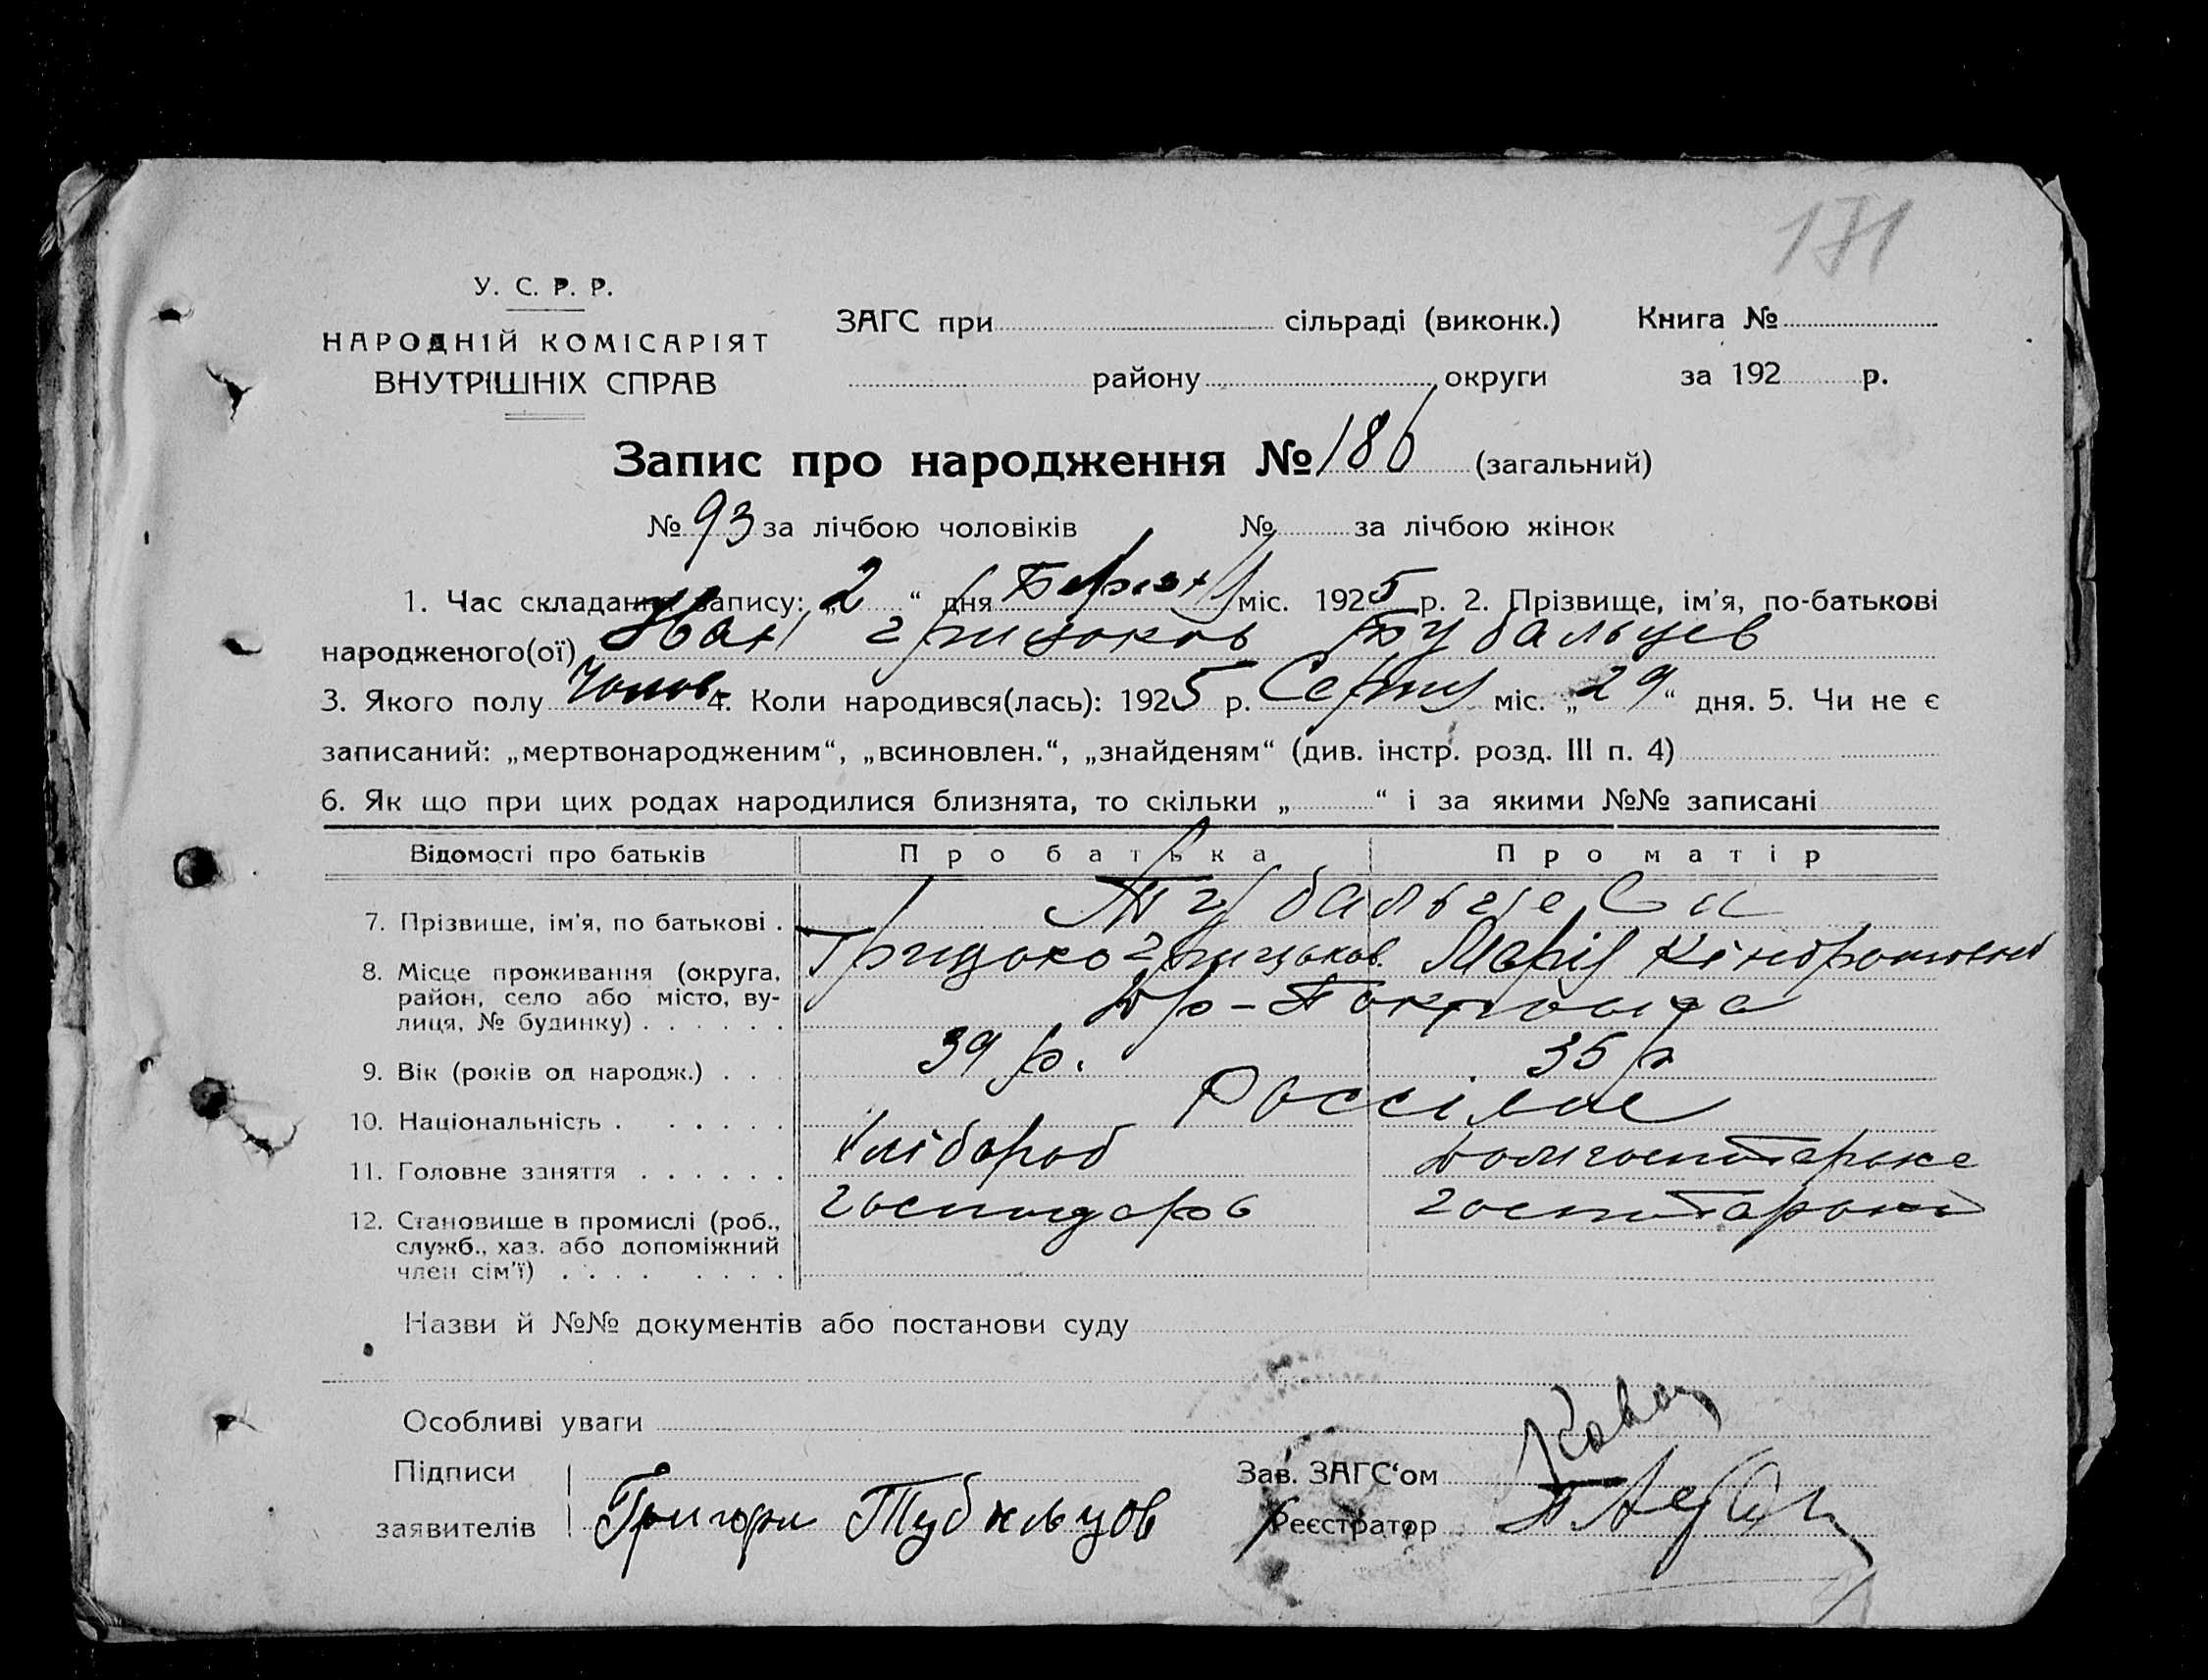 171
У. С. Р. Р.
НАРОДНІЙ КОМІСАРІЯТ
ВНУТРІШНІХ СПРАВ
ЗАГС при сільраді (виконк.) Книга №
району округи за 192 р.
Запис про народження № 186 (загальний)
№ 93 за лічбою чоловіків № за лічбою жінок
1. Час складання запису: „2“ дня Березня міс. 1925 р. 2. Прізвище, ім'я, по-батькові
народженого(ої) Іван Грицьков Тубальцев
3. Якого полу Чолов. 4. Коли народився(лась): 1925 р. Серпня міс. „29“ дня. 5. Чи не є
записаний: „мертвонародженим“, „всиновлен.“, „знайденям“ (див. інстр. розд. III п. 4)
6. Як що при цих родах народилися близнята, то скільки „ “ і за якими №№ записані
Відомості про батьків Про батька Про матір
7. Прізвище, ім'я, по батькові . Тубальцеви
Грицько Грицьков. Марія Кіндратовна
8. Місце проживання (округа,
район, село або місто, ву-
лиця, № будинку) . . . . . .
9. Вік (років од народж.) . . . 39 р. 35 р
10. Національність . . . . . . Россіяне
11. Головне заняття . . . . . . Хлібороб
12. Становище в промислі (роб., господарь
служб., хаз. або допоміжний
член сім'ї) . . . . . . . .
Назви й №№ документів або постанови суду
Особливі уваги
Підписи Зав. ЗАГС‘ом
заявителів Григори Тубальцов Реєстратор